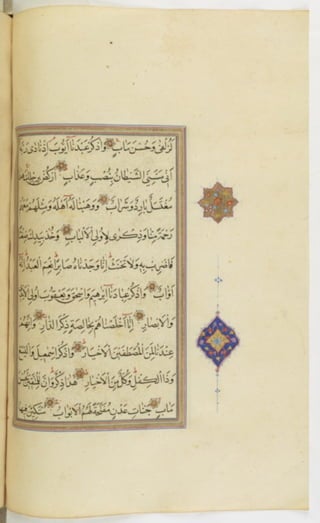 لَزُلْفَى وَحُسْنَ مَآبٍ وَاذْكُرْ عَبْدَنَا أَيُّوبَ إِذْ نَادَى رَبَّهُ
أَنِّي مَسَّنِيَ الشَّيْطَانُ بِنُصْبٍ وَعَذَابٍ ارْكُضْ بِرِجْلِكَ هَذَا
مُغْتَسَلٌ بَارِدٌ وَشَرَابٌ وَوَهَبْنَا لَهُ أَهْلَهُ وَمِثْلَهُمْ مَعَهُمْ
رَحْمَةً مِنَّا وَذِكْرَى لِأُولِي الْأَلْبَابِ وَخُذْ بِيَدِكَ ضِغْثًا
فَاضْرِبْ بِهِ وَلَا تَحْنَثْ إِنَّا وَجَدْنَاهُ صَابِرًا نِعْمَ الْعَبْدُ إِنَّهُ
أَوَّابٌ وَاذْكُرْ عِبَادَنَا إِبْرَهِيمَ وَإِسْحَقَ وَيَعْقُوبَ أُولِي الْأَيْدِي
وَالْأَبْصَارِ إِنَّا أَخْلَصْنَاهُمْ بِخَالِصَةٍ ذِكْرَى الدَّارِ وَإِنَّهُمْ
عِنْدَنَا لَمِنَ الْمُصْطَفَيْنَ الْأَخْيَارِ وَاذْكُرْ إِسْمَعِيلَ وَالْيَسَعَ
وَذَا الْكِفْلِ وَكُلٌّ مِنَ الْأَخْيَارِ هَذَا ذِكْرٌ وَإِنَّ لِلْمُتَّقِينَ لَحُسْنَ
مَآبٍ جَنَّاتِ عَدْنٍ مُفَتَّحَةً لَهُمُ الْأَبْوَابُ مُتَّكِئِينَ فِيهَا